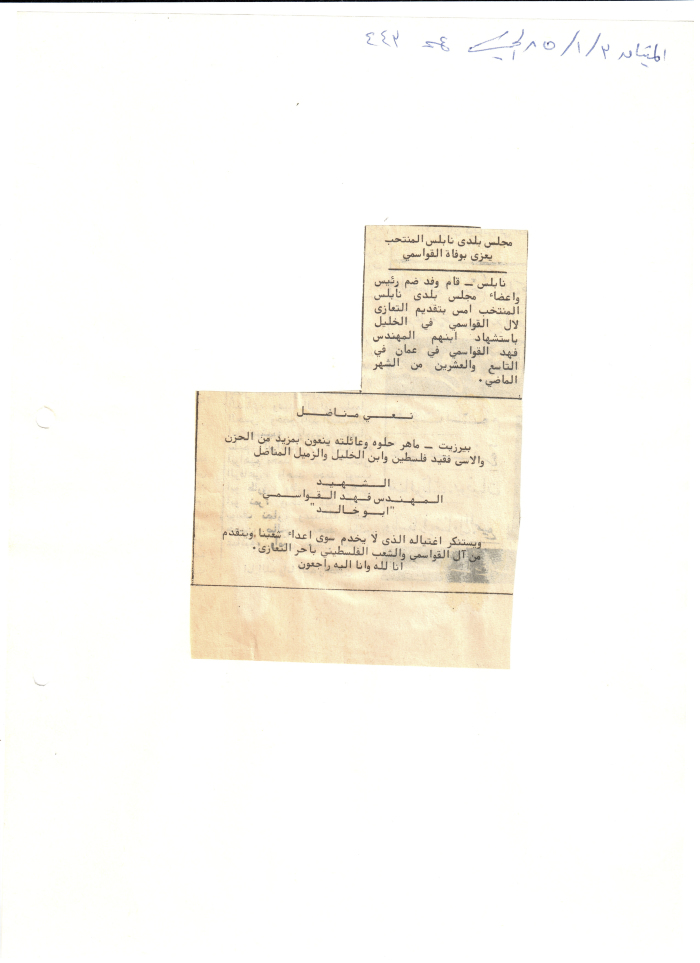 الميثاق ٨٥/١/٣ الخميس عدد ٤٤٣
مجلس بلدى نابلس المنتخب
يعزى بوفاة القواسمي
نابلس ــ قام وفد ضم رئيس
واعضاء مجلس بلدى نابلس
المنتخب امس بتقديم التعازى
لال القواسمي في الخليل
باستشهاد ابنهم المهندس
فهد القواسمي في عمان في
التاسع والعشرين من الشهر
الماضي .
نـــعـــي مـنـاضــل
بيرزيت ــ ماهر حلوه وعائلته ينعون بمزيد من الحزن
والاسى فقيد فلسطين وابن الخليل والزميل المناضل
الــشــهــيــد
المـهـنـدس فـهـد الـقـواسـمـي
"ابـو خالـد"
ويستنكر اغتياله الذى لا يخدم سوى اعداء شعبنا ويتقدم
من آل القواسمي والشعب الفلسطيني بأحر التعازى .
انا لله وانا اليه راجعون